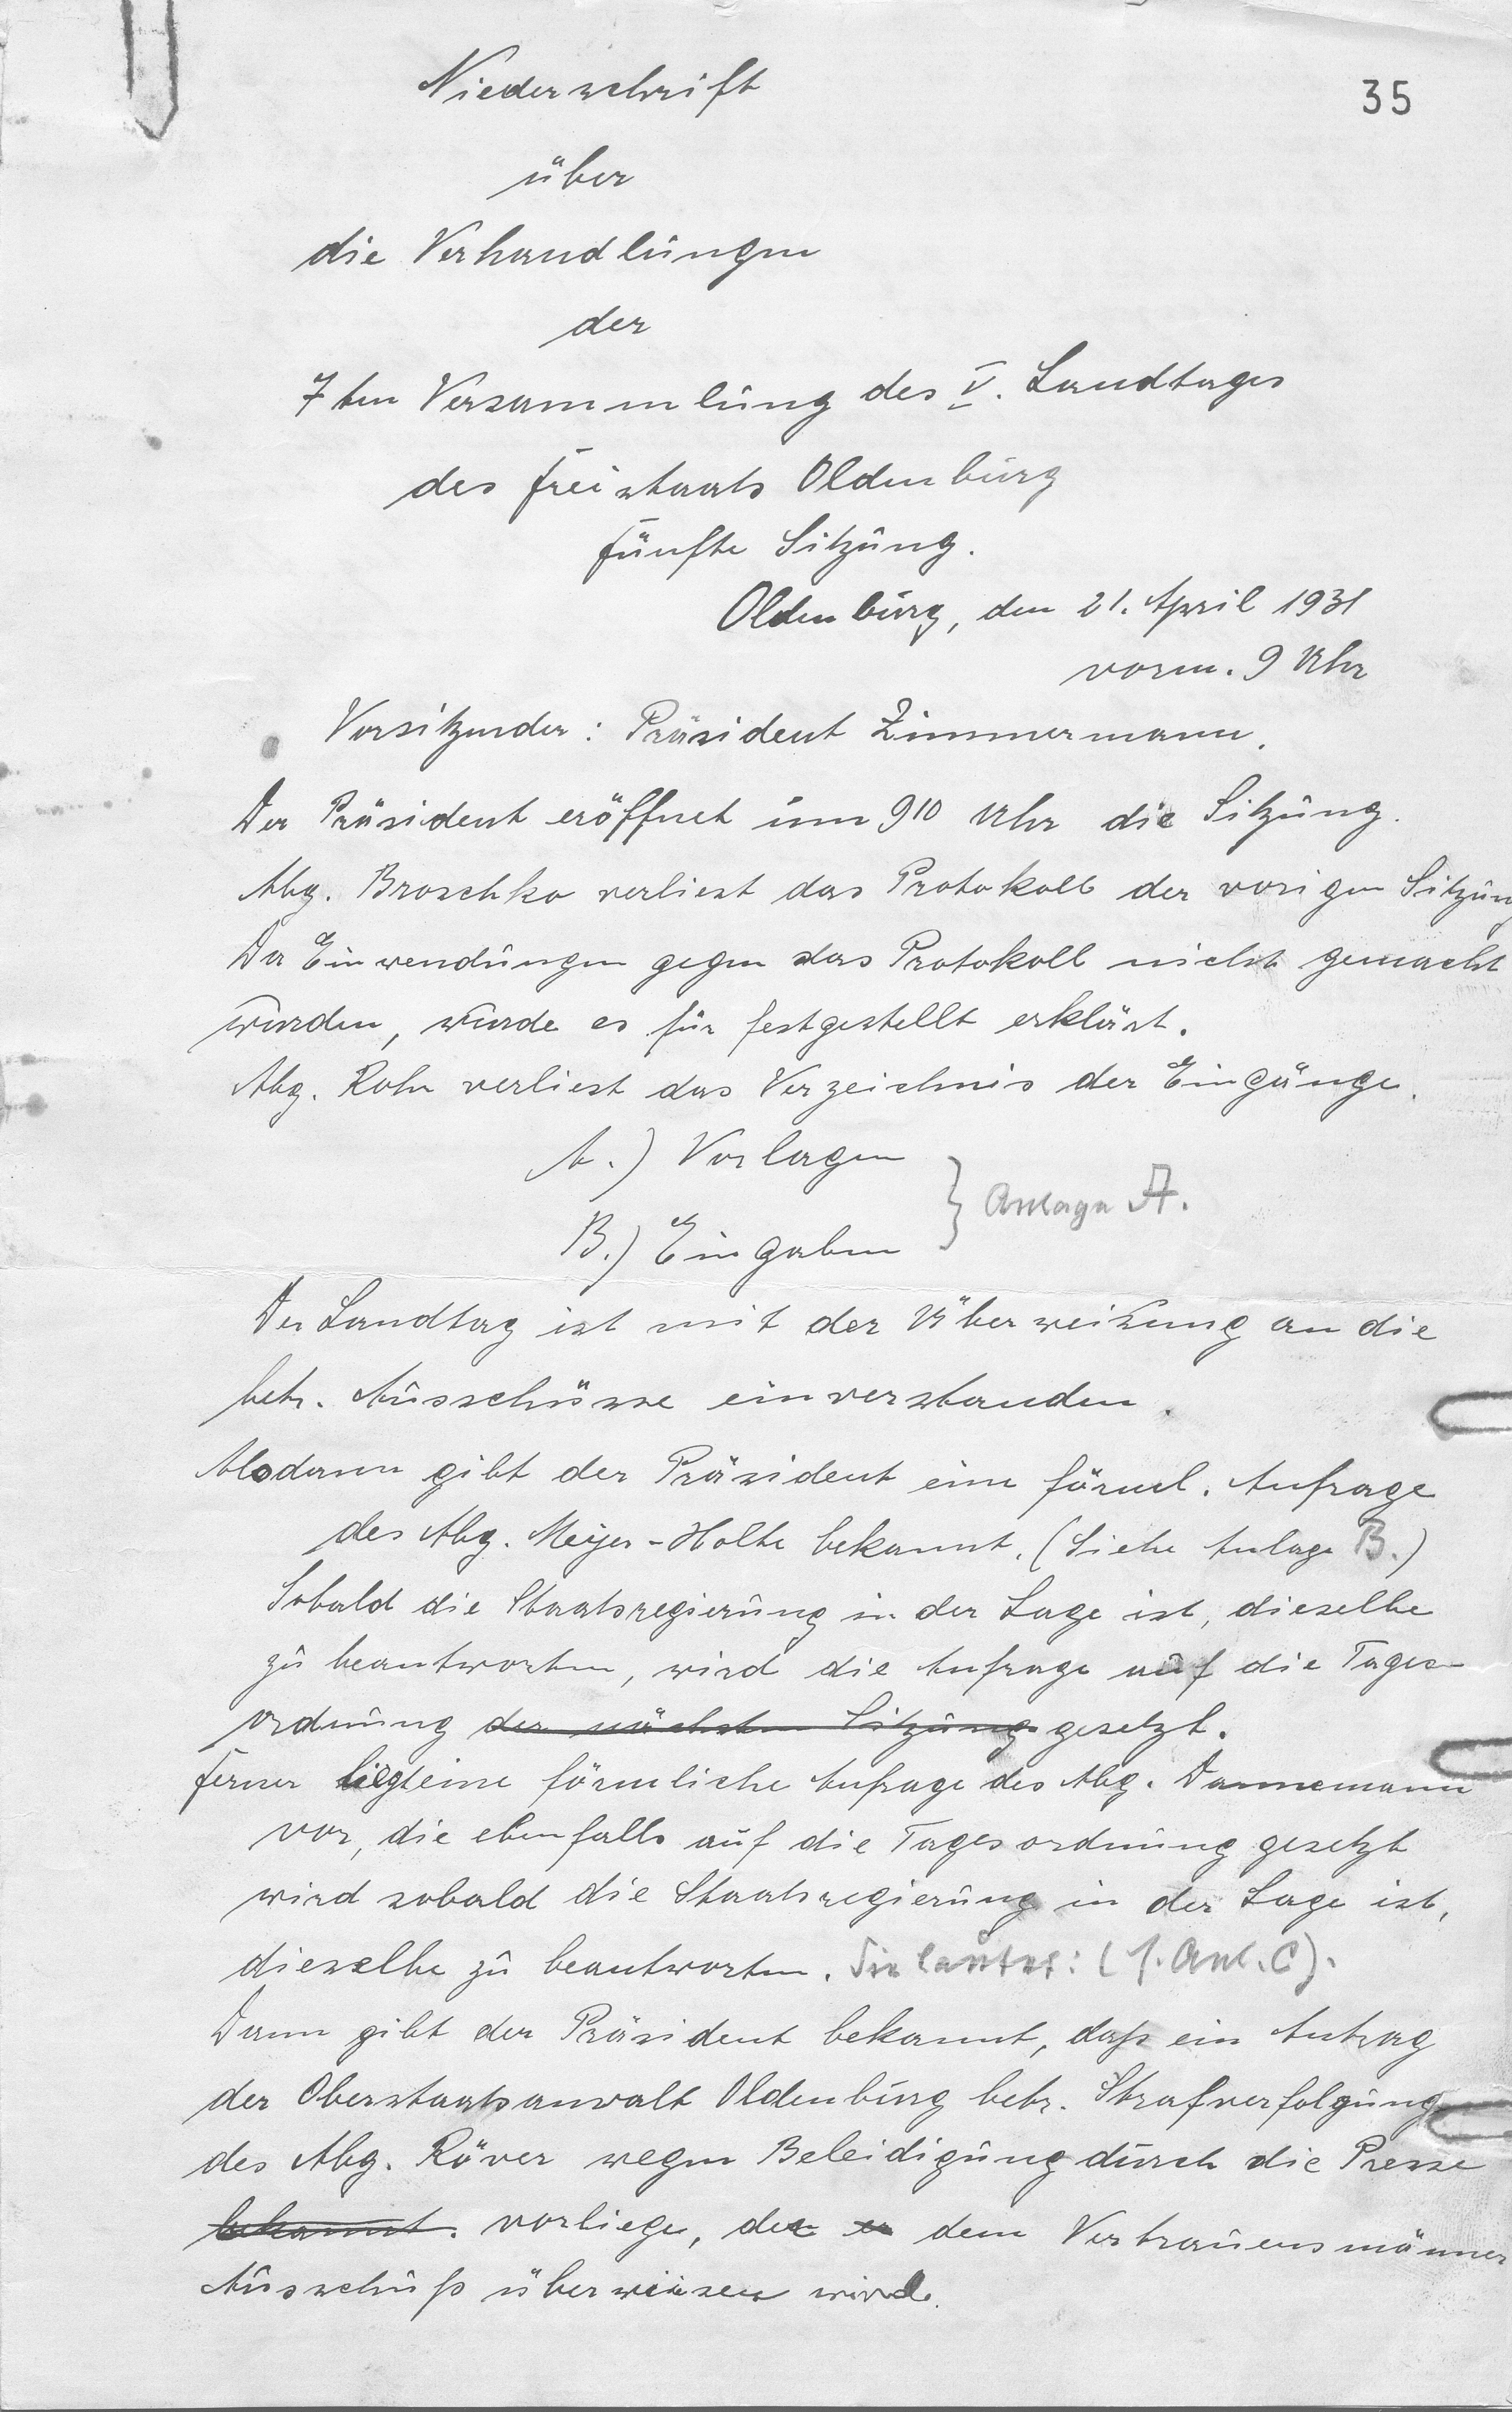 35
Niederschrift
über
die Verhandlungen
der
7ten Versammlung des V. Landtages
des Freistaats Oldenburg
Fünfte Sitzung.
Oldenburg, den 21. April 1931
vorm. 9 Uhr
Vorsitzender: Präsident Zimmermann.
Der Präsident eröffnet um 9 10 Uhr die Sitzung.
Abg. Broschko verliest das Protokoll der vorigen Sitzung
Da Einwendungen gegen das Protokoll nicht gemacht
wurden, wurde es für festgestellt erklärt.
Abg. Rohr verliest das Verzeichnis der Eingänge.
A.) Vorlagen
} Anlage A.
B.) Eingaben
Der Landtag ist mit der Überweisung an die
betr. Ausschüsse einverstanden.
Alsdann gibt der Präsident eine förml. Anfrage
des Abg. Meyer-Holte bekannt. (Siehe Anlage B.)
Sobald die Staatsregierung in der Lage ist, dieselbe
zu beantworten, wird die Anfrage auf die Tages-
ordnung der nächsten Sitzung gesetzt.
Ferner liegt eine förmliche Anfrage des Abg. Dannemann
vor, die ebenfalls auf die Tagesordnung gesetzt
wird sobald die Staatsregierung in der Lage ist,
dieselbe zu beantworten. Sie lautet: (s. Anl. C).
Dann gibt der Präsident bekannt, daß ein Antrag
der Oberstaatsanwalt Oldenburg betr. Strafverfolgung
des Abg. Röver wegen Beleidigung durch die Presse
bekannt. vorliege, der er dem Vertrauensmänner
Ausschuß überwiesen wird.